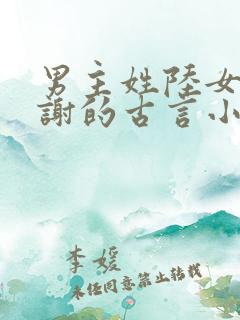 男主姓陸女
謝的古言小
李媛
未经同意禁止转载